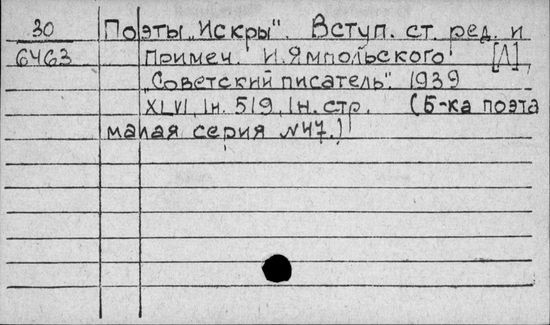 30 Поэты „Искры". Вступ. ст. ред. и
6463 Примеч. И. Ямпольского [Л]
„Советский писатель". 1939
XLVI, 1н. 519, 1н. стр. (Б-ка поэта
малая серия №47.)